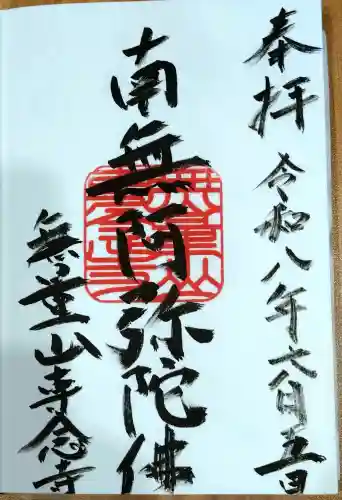 奉拝 令和八年六月五日
南無阿弥陀佛
無量山寺念寺